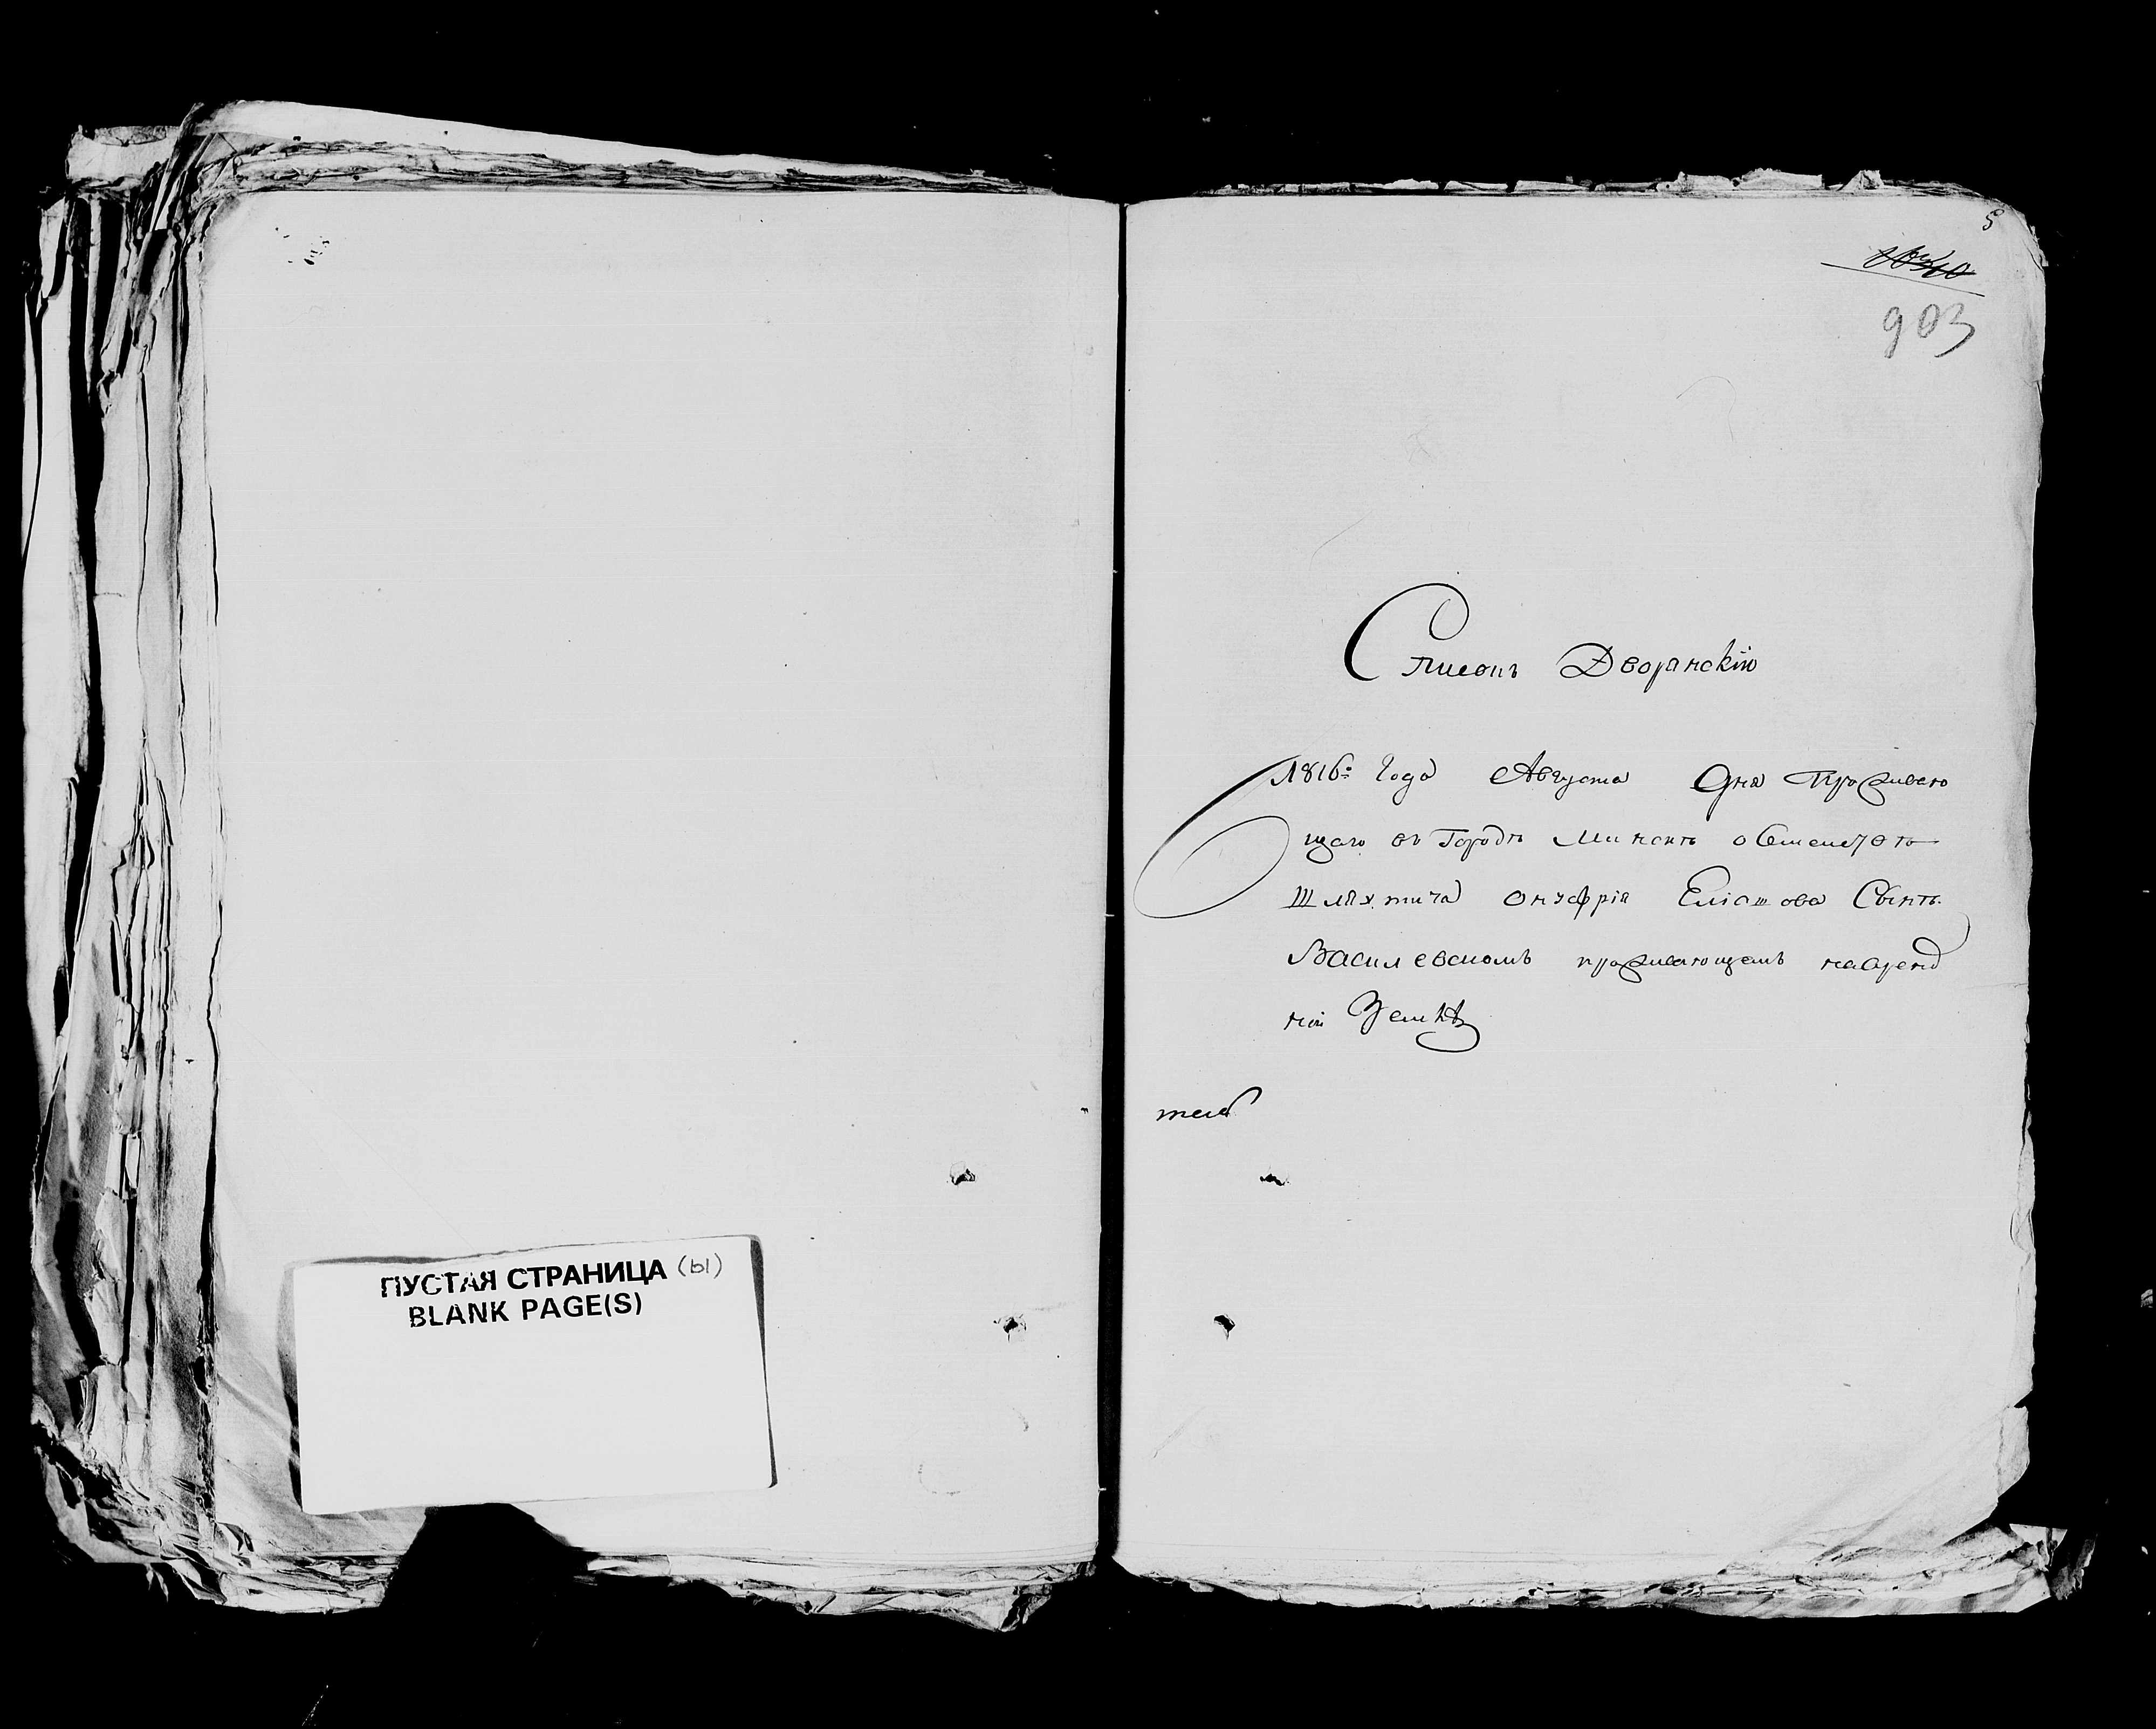 ПУСТАЯ СТРАНИЦА (ы)
BLANK PAGE(S)
5
903
Списокъ Дворянскiй
1816го Года Августа Дня Проживаю
щаго въ Городѣ Минскѣ о
Шляхтича Онуфрiя Елiашова Сынѣ
Василевскомъ проживающемъ наАренд
ной Землѣ